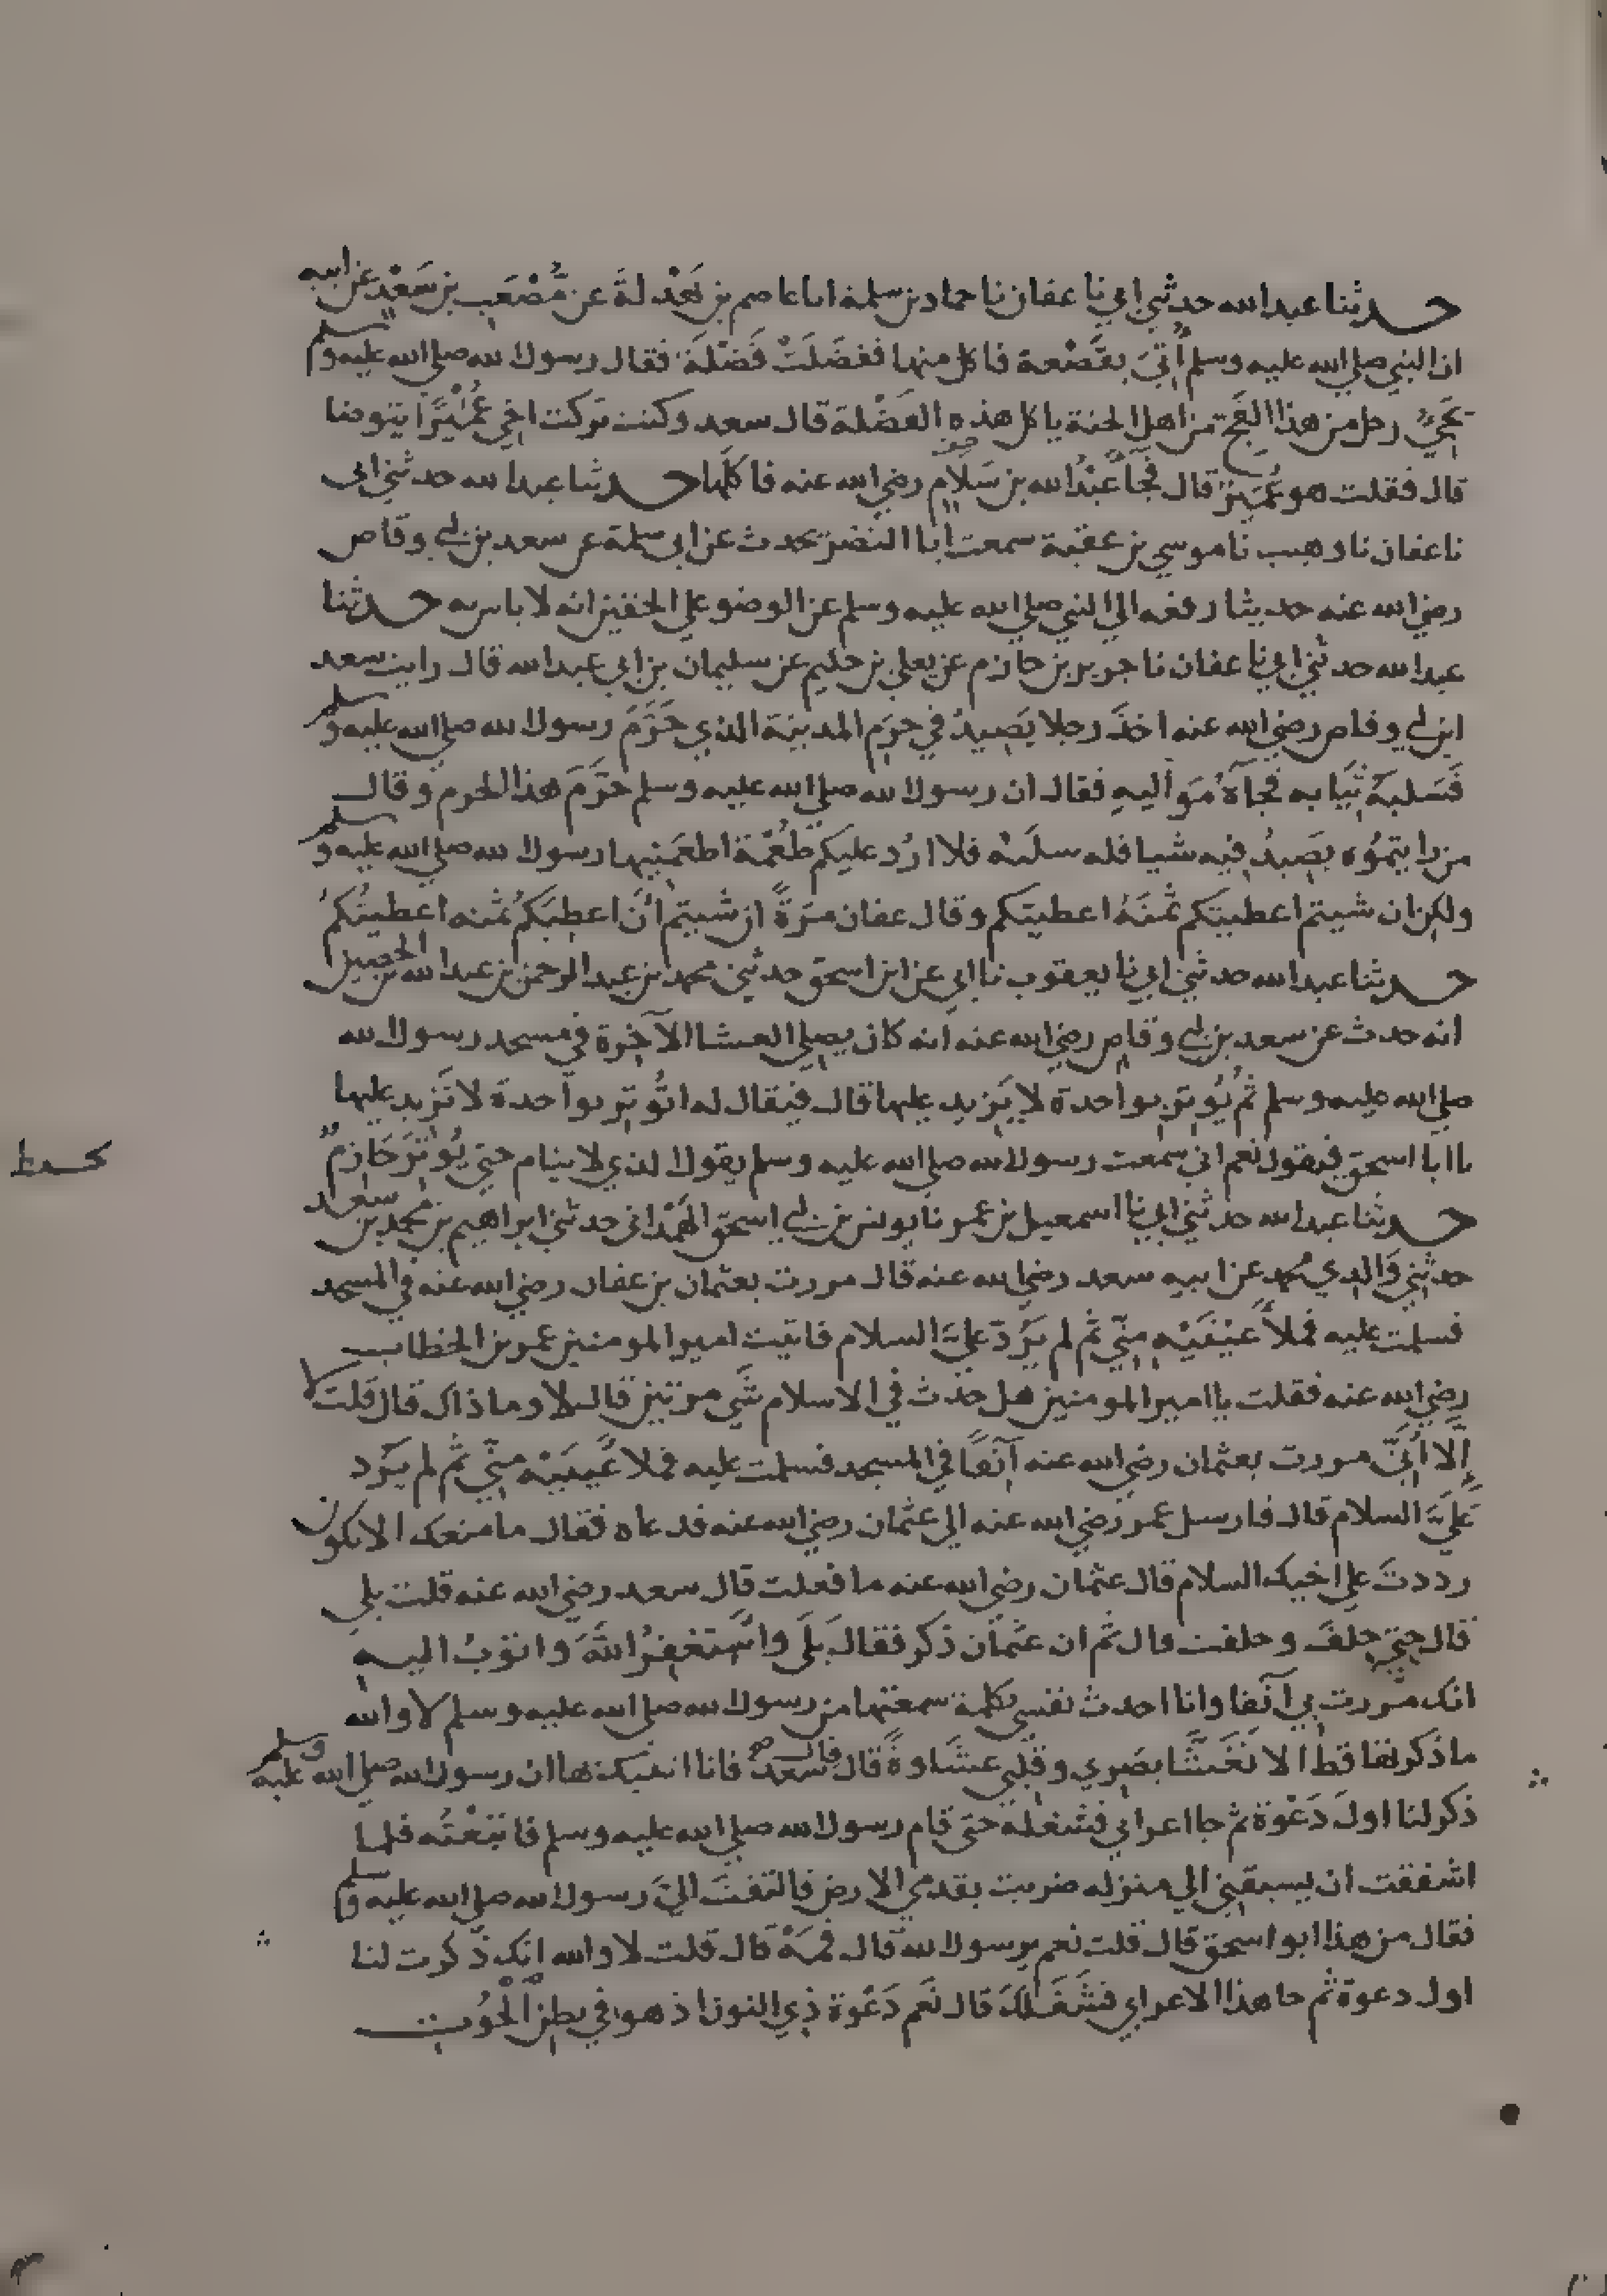 حدثنا عبد الله حدثني ابي نا عفان نا حماد بن سلمة انا عاصم بن بَهْدلةَ عن مُصْعَب بن سَعْدٍ عن ابيه
ان النبي صلى الله عليه وسلم أُتيَ بقَصْعة فاكل منها ففضَلَتْ فَضْلَة فقال رسول الله صلى الله عليه وسلم
يَجيُ رجل من هذا الفَجّ من اهل الجنة ياكل هذه الفَضْلة قال سعد وكنت تركت اخي عُمَيْرًا يتوضا
قال فقلت هو عُمَيرٌ قال فجآ عَبْدُ الله بن سَلَام رضي الله عنه فاكلَها حدثنا عبد الله حدثني ابي
نا عفان نا وهيب نا موسى بن عقبة سمعت ابا النضر يحدث عن ابي سلمة عن سعد بن ابي وقاص
رضي الله عنه حديثا رفعه الى النبي صلى الله عليه وسلم عن الوضو على الخفين انه لا باس به حدثنا
عبد الله حدثني ابي نا عفان نا جرير بن حازم عن يعلى بن حكيم عن سليمان بن ابي عبد الله قال رايت سعد
ابن ابي وقاص رضي الله عنه اخذَ رجلا يَصِيدُ في حرَم المدينة الذي حَرَّمَ رسول الله صلى الله عليه وسلم
فَسَلبَهُ ثيَابه فجاهُ مَواليهِ فقال ان رسول الله صلى الله عليه وسلم حرَّمَ هذا الحرم وقال
من رايتمُوه يصَيدُ فيه شيا فله سلَبُه فلا ارُد عليكم طُعْمَة اطعَمَنِيها رسول الله صلى الله عليه وسلم
ولكن ان شيتم اعطيتكم ثمنَهُ اعطيتكم وقال عفان مرَةً ان شيتم أنْ اعطِيَكُم ثمنه اعطيتُكم
حدثنا عبد الله حدثني ابي نا يعقوب نا ابي عن ابن اسحق حدثني محمد بن عبد الرحمن بن عبد الله بن الحصين
انه حدث عن سعد بن ابي وقاص رضي الله عنه انه كان يصلي العشا الآخرة في مسجد رسول الله
صلى الله عليه وسلم ثم يُوتِر بواحدة لا يَزيد عليها قال فيقال له اتُوتِر بواحدة لا تَزيد عليها
يا ابا اسحق فيقول نعم اني سمعت رسول الله صلى الله عليه وسلم يقول الذي لا ينام حتى يُوترَ حَازمٌ
حدثنا عبد الله حدثني ابي نا اسمعيل بن عمر نا يونس بن ابي اسحق الهَمْداني حدثني ابراهيم بن محمد بن سعد
حدثني والدي محمد عن ابيه سعد رضي الله عنه قال مررت بعثمان بن عفان رضي الله عنه في المسجد
فسلمت عليه فملأ عَيْنَيْه مِنّي ثم لم يَرُدّ عليَّ السلام فاتيت امير المومنين عمر بن الخطاب
رضي الله عنه فقلت يا امير المومنين هل حَدَث في الاسلام شَي مرتين قال لا وما ذاك قال قلت لا
إلّا أنِّي مررت بعثمان رضي الله عنه آنفًا في المسجد فسلمت عليه فملا عَينَيْه منّي ثم لم يَرُد
عليَّ السلام قال فارسل عمر رضي الله عنه الى عثمان رضي الله عنه فدعاه فقال ما منعك الا تكون
رددتَ على اخيك السلام قال عثمان رضي الله عنه ما فعلت قال سعد رضي الله عنه قلت بلى
قال حتى حلفَ وحلفت قال ثم ان عثمان ذكر فقال بَلَى واسْتغفِرُ اللهَ واتوبُ اليه
انك مررت بي آنفا وانا احدث نفسي بكلمة سمعتها من رسول الله صلى الله عليه وسلم لا والله
ما ذكرتها قط الا تَغَشَّا بصَري وقلبي غشَاوةً قال قال سعدٌ فانا انبيك بها ان رسول الله صلى الله عليه وسلم
ذكر لنا اولَ دَعْوة ثم جا اعرابي فشغله حتى قام رسول الله صلى الله عليه وسلم فاتبَعْتُه فلما
اشفقت ان يسبقني الى منزله ضربت بقدمي الارض فالتفتَ اليَّ رسول الله صلى الله عليه وسلم
فقال من هذا ابو اسحق قال قلت نعم يرسول الله قال فمَهْ قال قلت لا والله انك ذكرت لنا
اول دعوة ثم جا هذا الاعرابي فشَغَلَكَ قال نَعَم دَعْوة ذي النون اذ هو في بطن الحُوت